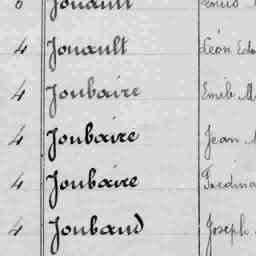 Jouault
4 Jouault Léon
4 Joubaire Emile
4 Joubaire Jean
4 Joubaire Ferdina
4 Joubaud Joseph